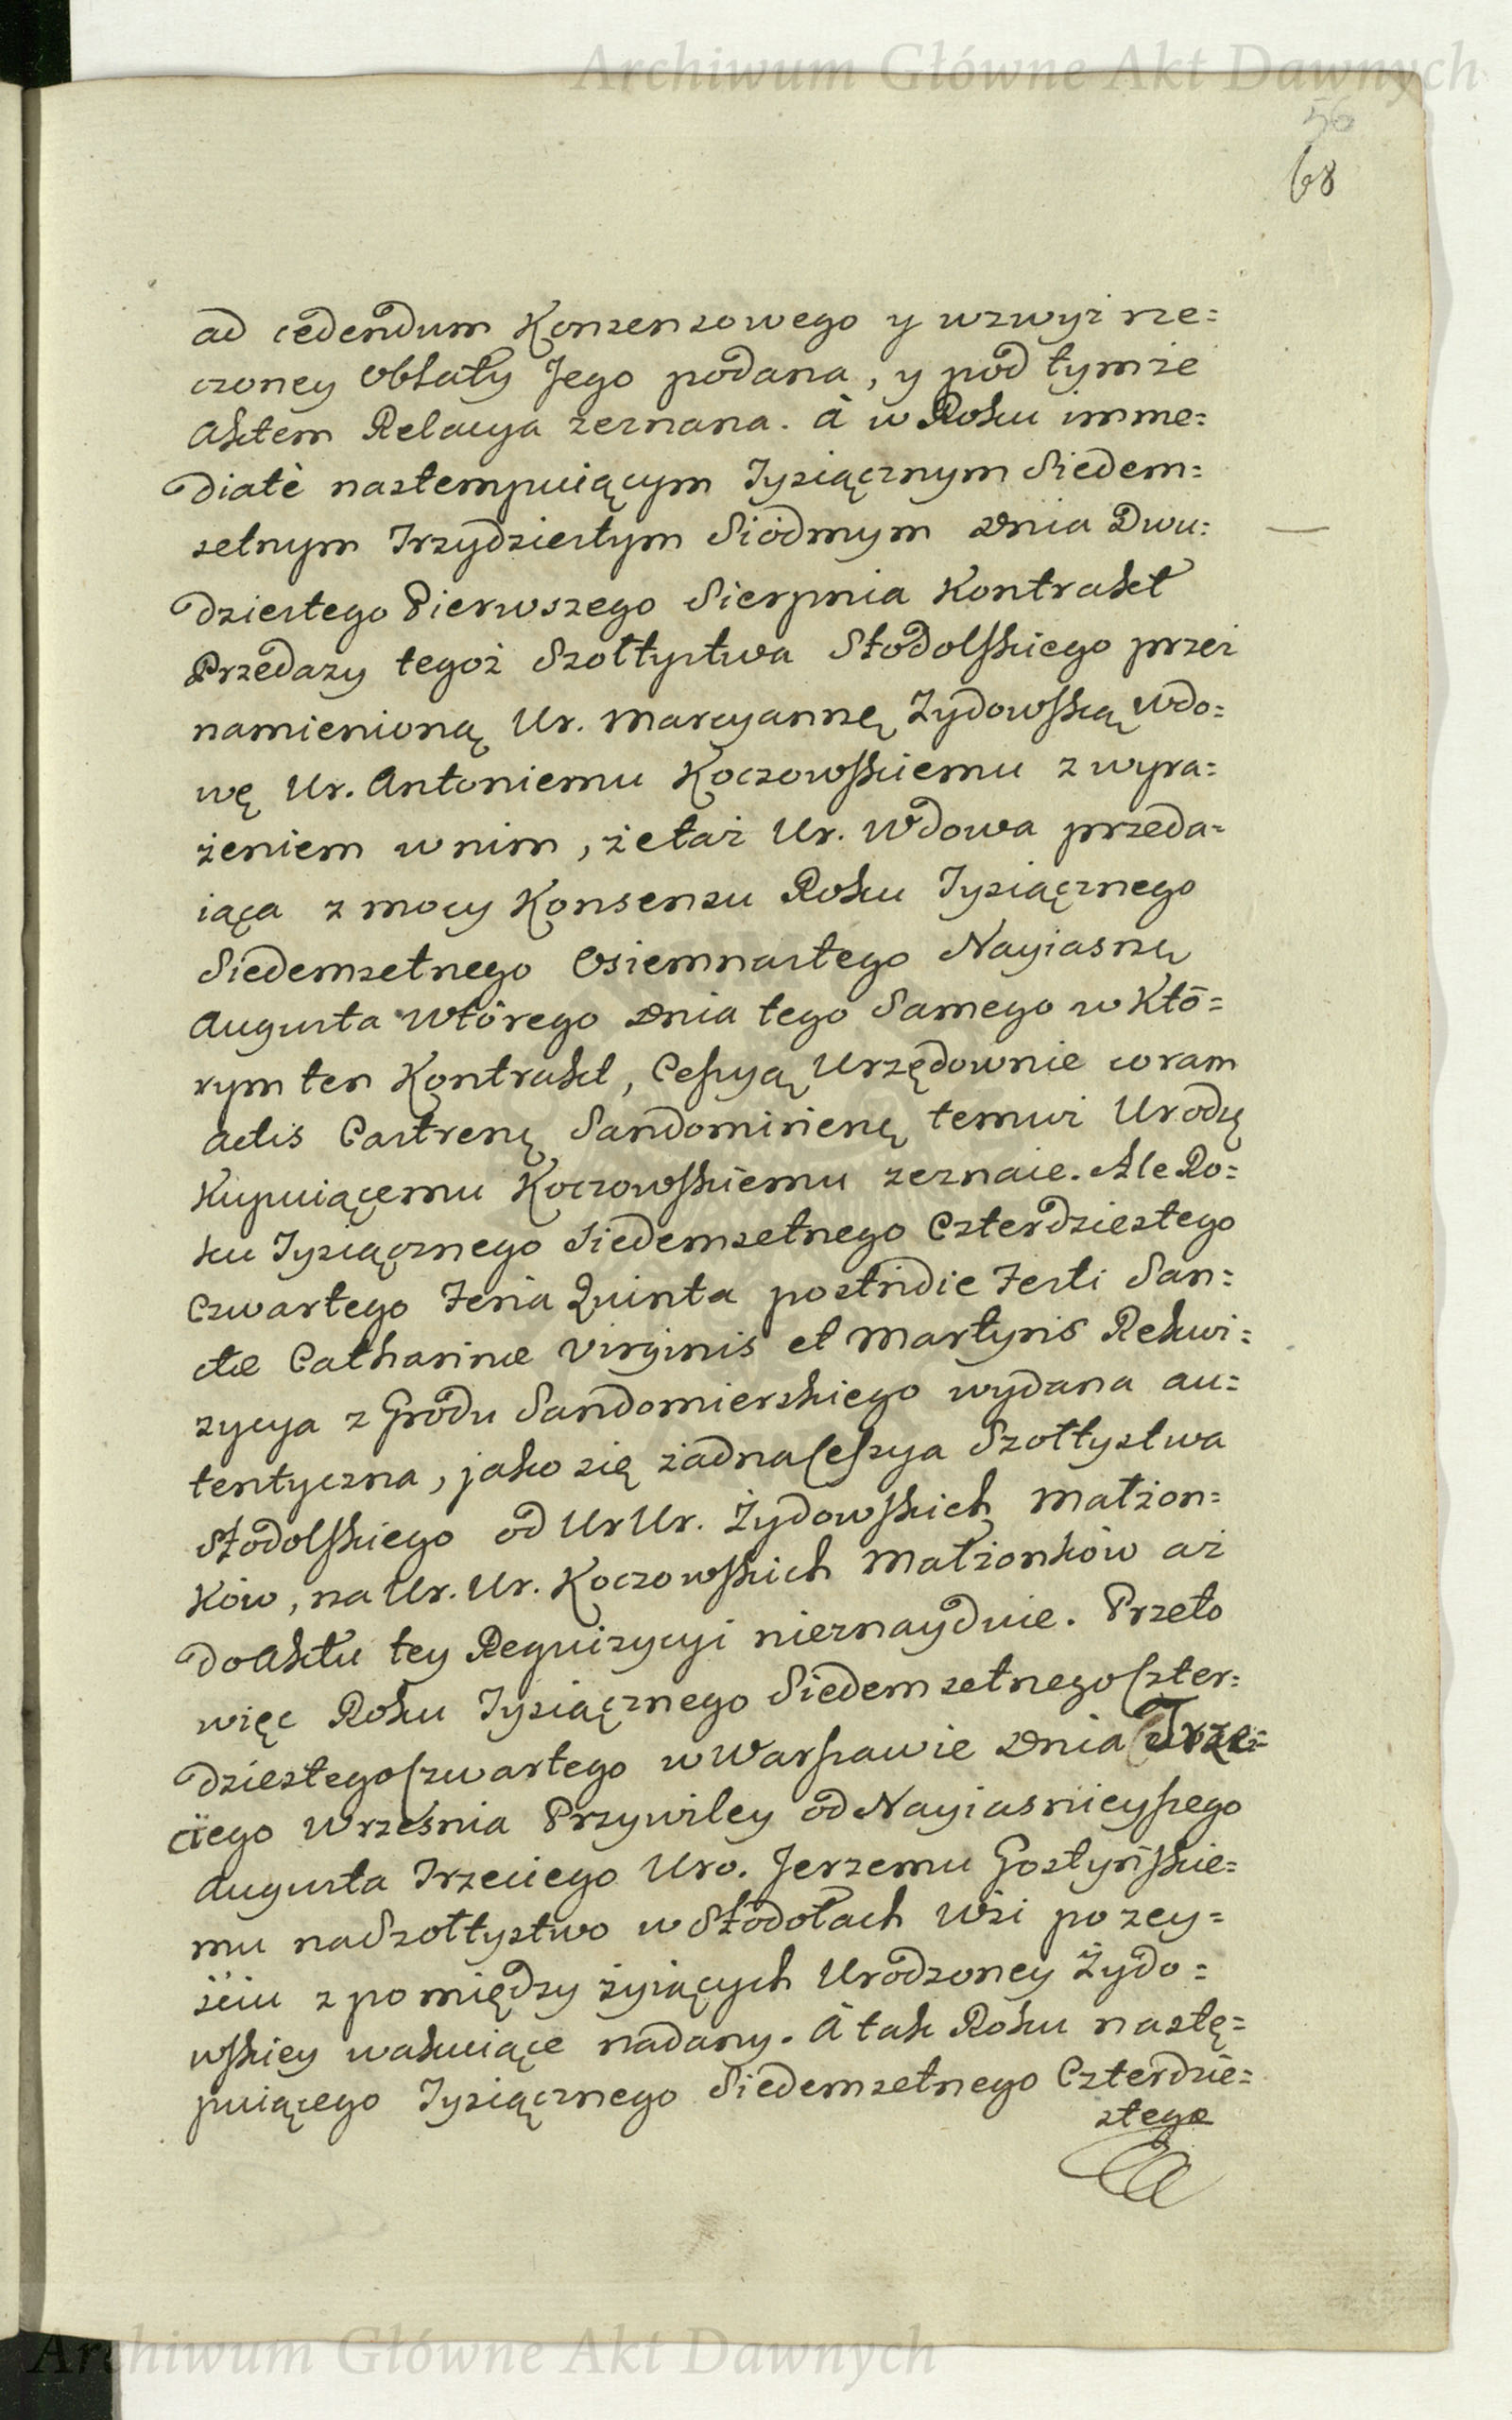 Archiwum Główne Akt Dawnych
56
68
ad cedendum Konsensowego y wzwyż rze=
czoney Oblaty Jego podana, y pod tymże
Aktem Relacya zeznana. à w Roku imme=
diatè nastempuiącym Tysiącznym Siedem=
setnym Trzydziestym Siódmym Dnia Dwu=
dziestego Pierwszego Sierpnia Kontrakt
Przedaży tegoż Szołtystwa Stodolskiego przez
namienioną Ur. Marcyannę Żydowską wdo=
wę Ur. Antoniemu Koczowskiemu z wyra=
żeniem w nim, że taż Ur. Wdowa przeda=
iąca z mocy Konsensu Roku Tysiącznego
Siedemsetnego Osiemnastego Nayiasnę
Augusta Wtórego Dnia tego Samego w Któ=
rym ten Kontrakt, Cessyą Urzędownie coram
Actis Castrenę Sandomirienę temuż Urodzę
Kupuiącemu Koczowskiemu zeznaie. Ale Ro=
ku Tysiącznego Siedemsetnego Czterdziestego
Czwartego Feria Quinta postridie Festi San=
ctæ Catharinæ Virginis et Martyris Rekwi=
zycya z Grodu Sandomierskiego wydana au=
tentyczna, jako się żadna Cessya Szołtystwa
Stodolskiego od Ur Ur. Żydowskich Małżon=
ków, na Ur. Ur. Koczowskich Małżonków aż
do Aktu tey Requizycyi nieznayduie. Przeto
więc Roku Tysiącznego Siedemsetnego Czter=
dziestego Czwartego w Warszawie Dnia Trze=
ciego Września Przywiley od Nayiasnieyszego
Augusta Trzeciego Uro. Jerzemu Gostyńskie=
mu na Szołtystwo w Stodołach Wsi po zey=
ściu z pomiędzy żyiących Urodzoney Żydo=
wskiey wakuiące nadany. À tak Roku nastę=
puiącego Tysiącznego Siedemsetnego Czterdzie=
stego
Archiwum Główne Akt Dawnych